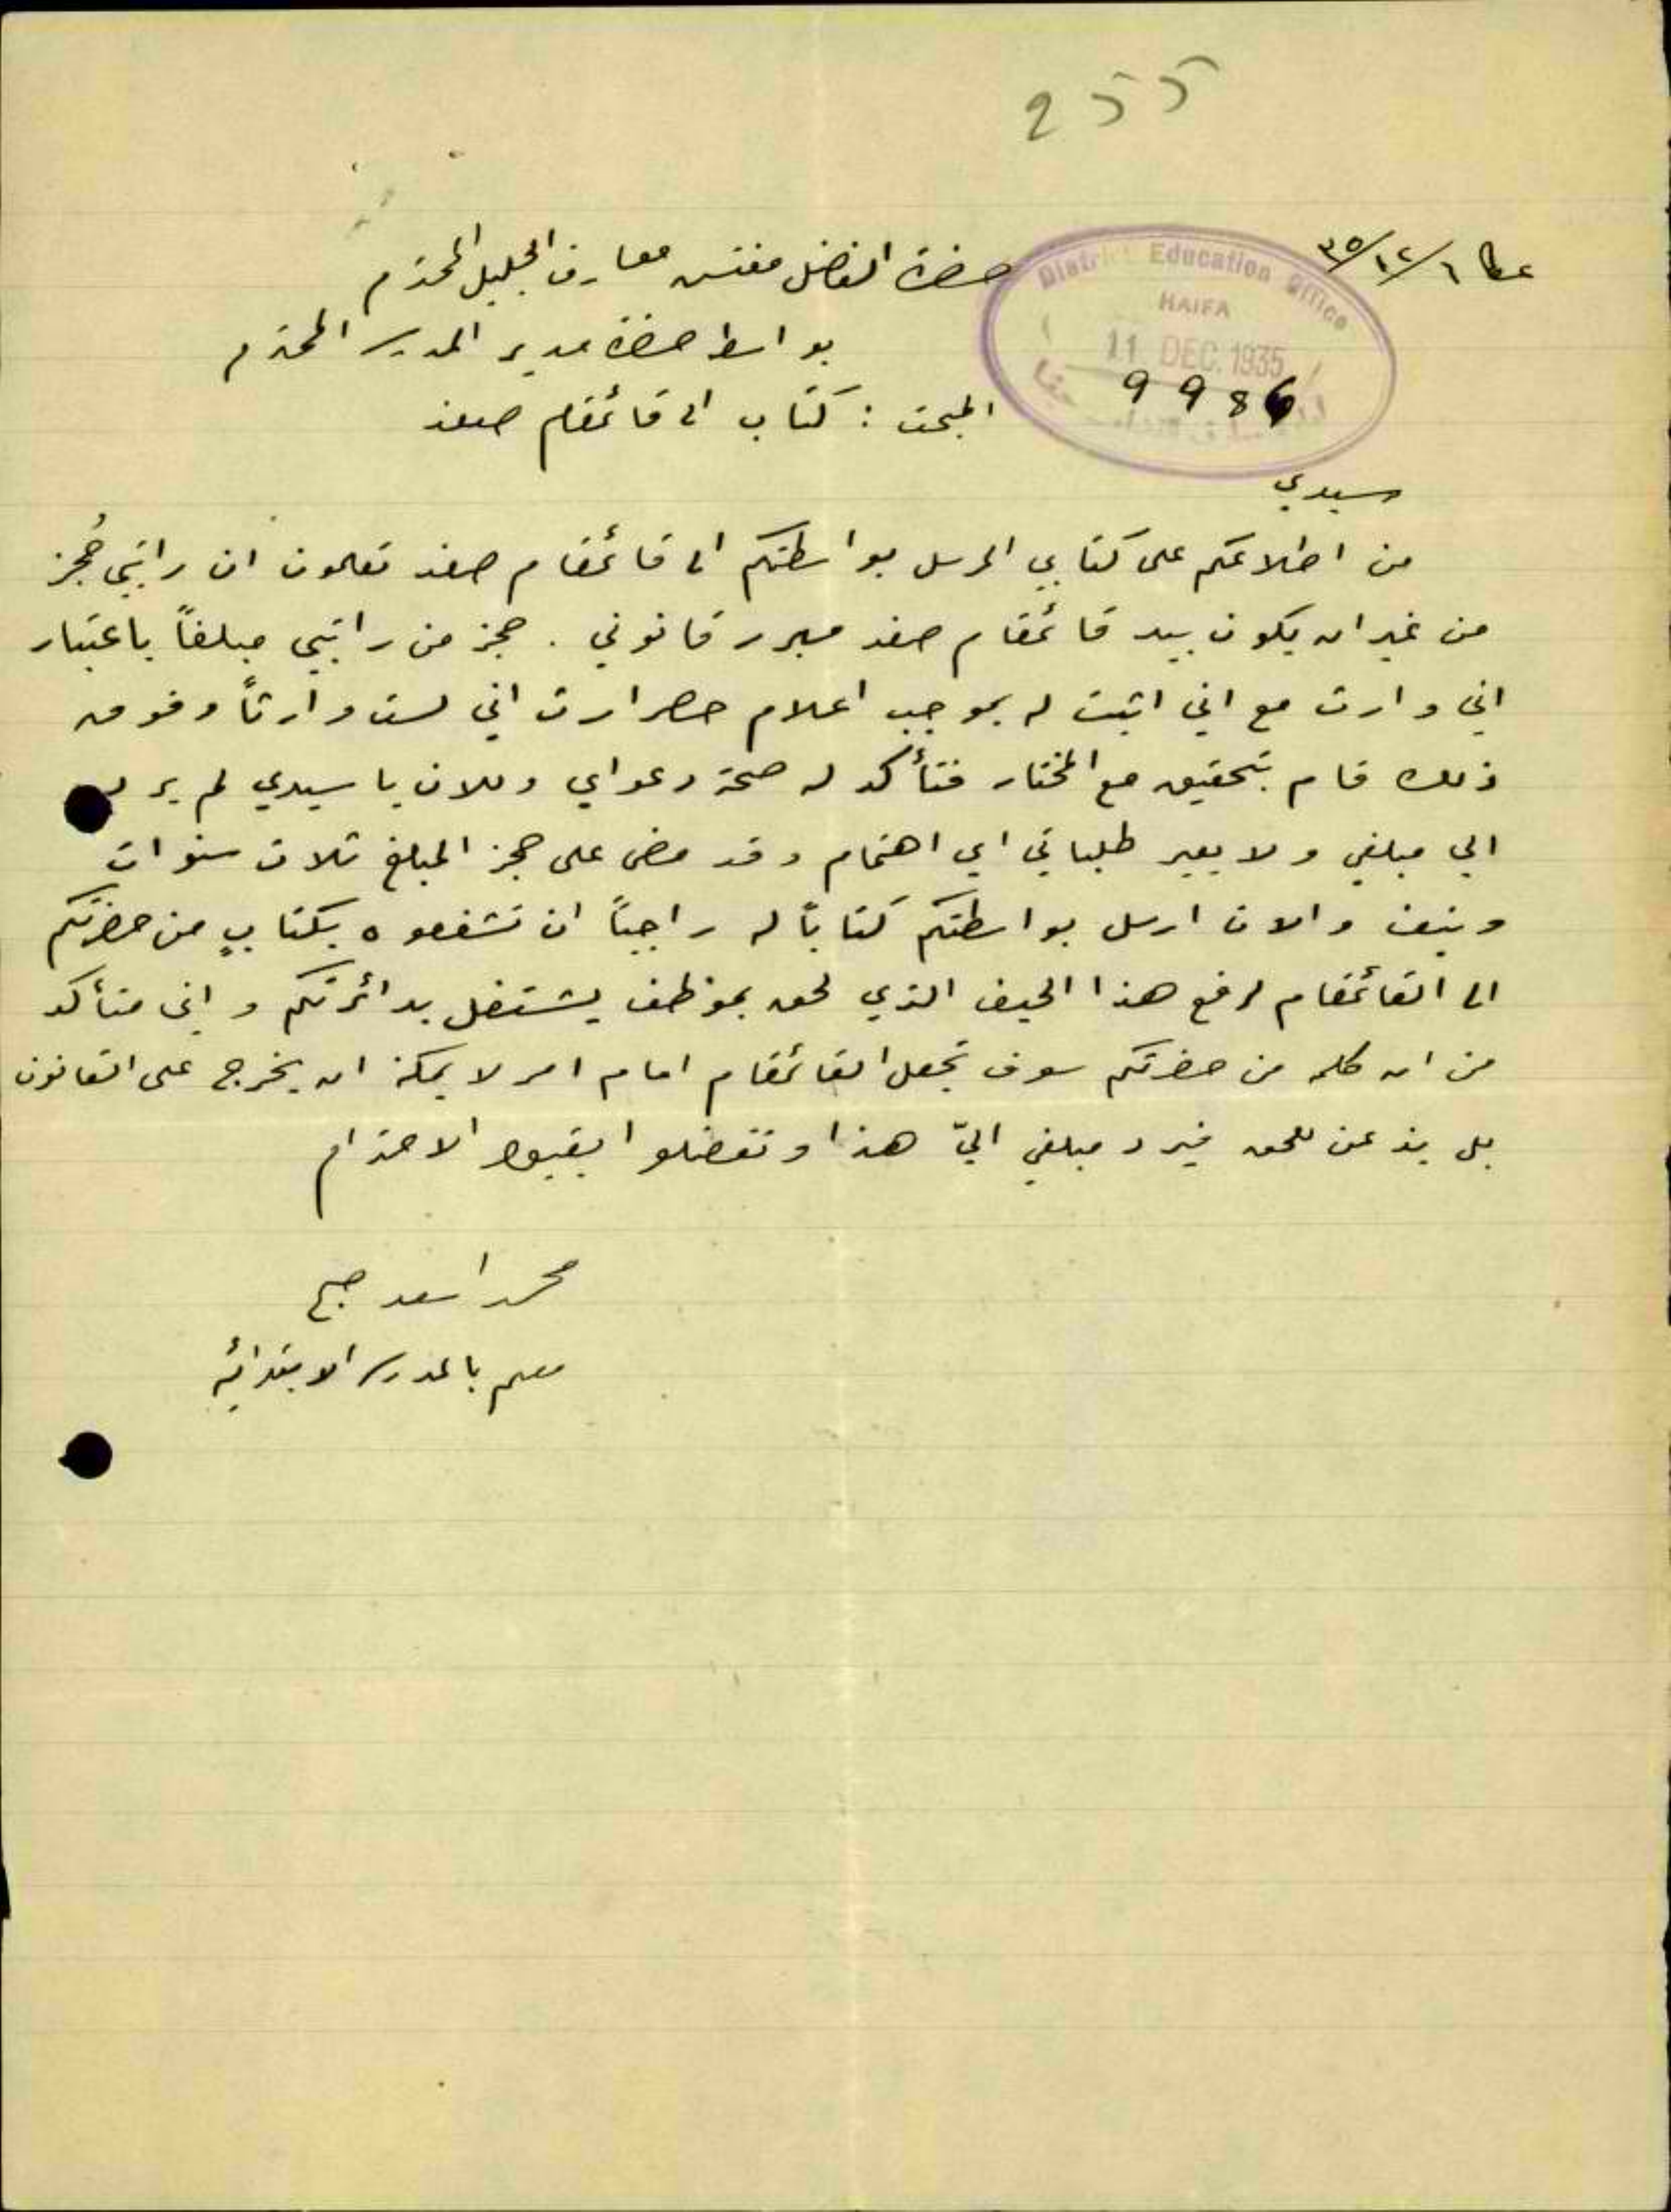 255
عكا ٦/١٢/٣٥
District Education Office
HAIFA
11 DEC. 1935
9986
حضرة الفاضل مفتش معارف الجليل المحترم
بواسطة حضرة مدير المدرسة المحترم
المبحث : كتاب الى قائمقام صفد
سيدي
من اطلاعكم على كتابي المرسل بواسطتكم الى قائمقام صفد تعلمون ان راتبي حُجز
من غير ان يكون بيد قائمقام صفد مبرر قانوني . حجز من راتبي مبلغاً باعتبار
اني وارث مع اني اثبت له بموجب اعلام حصر ارث اني لست وارثاً وفوق
ذلك قام بتحقيق مع المختار فتأكد له صحة دعواي وللان يا سيدي لم يرد
الي مبلغي ولا يعير طلباتي اي اهتمام وقد مضى على حجز المبلغ ثلاث سنوات
ونيف والان ارسل بواسطتكم كتاباً له راجياً ان تشفعوه بكتابٍ من حضرتكم
الى القائمقام لرفع هذا الحيف الذي لحق بموظف يشتغل بدائرتكم واني متأكد
من ان كلمة من حضرتكم سوف تجعل القائمقام امام امر لا يمكنه ان يخرج على القانون
بل يذعن للحق فيرد مبلغي اليّ هذا وتفضلوا بقبول الاحترام
محمد اسعد صبح
معلم بالمدرسة الابتدائية